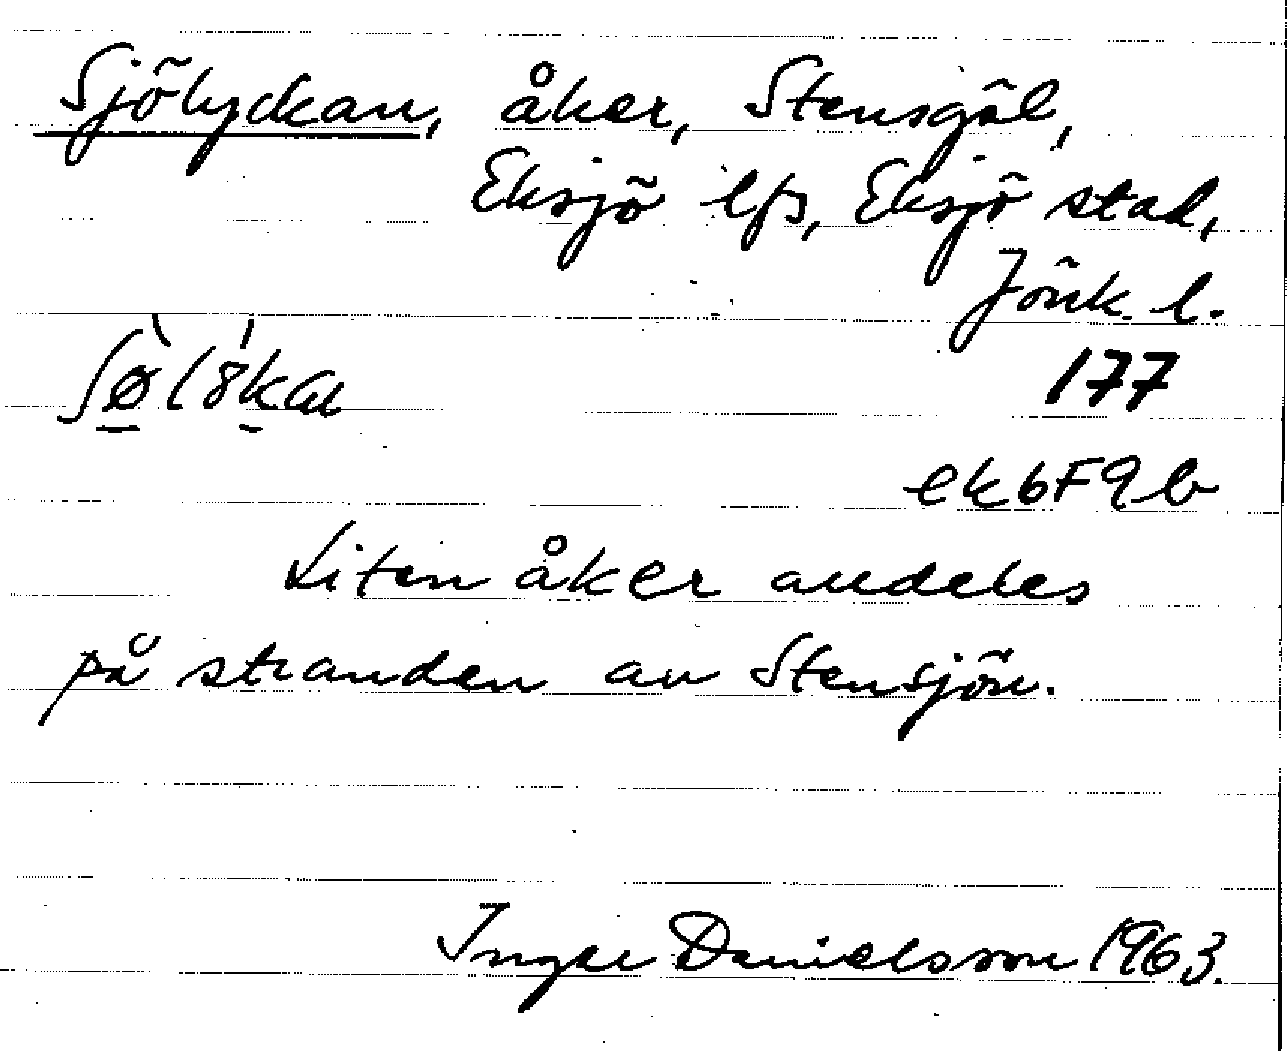 Sjölyckan, åker, Stensgöl,
Eksjö lfs, Eksjö stad,
Jönk. l.
177
ek6F9b
Liten åker andeles
på stranden av Stensjön.
Inger Danielsson 1963.